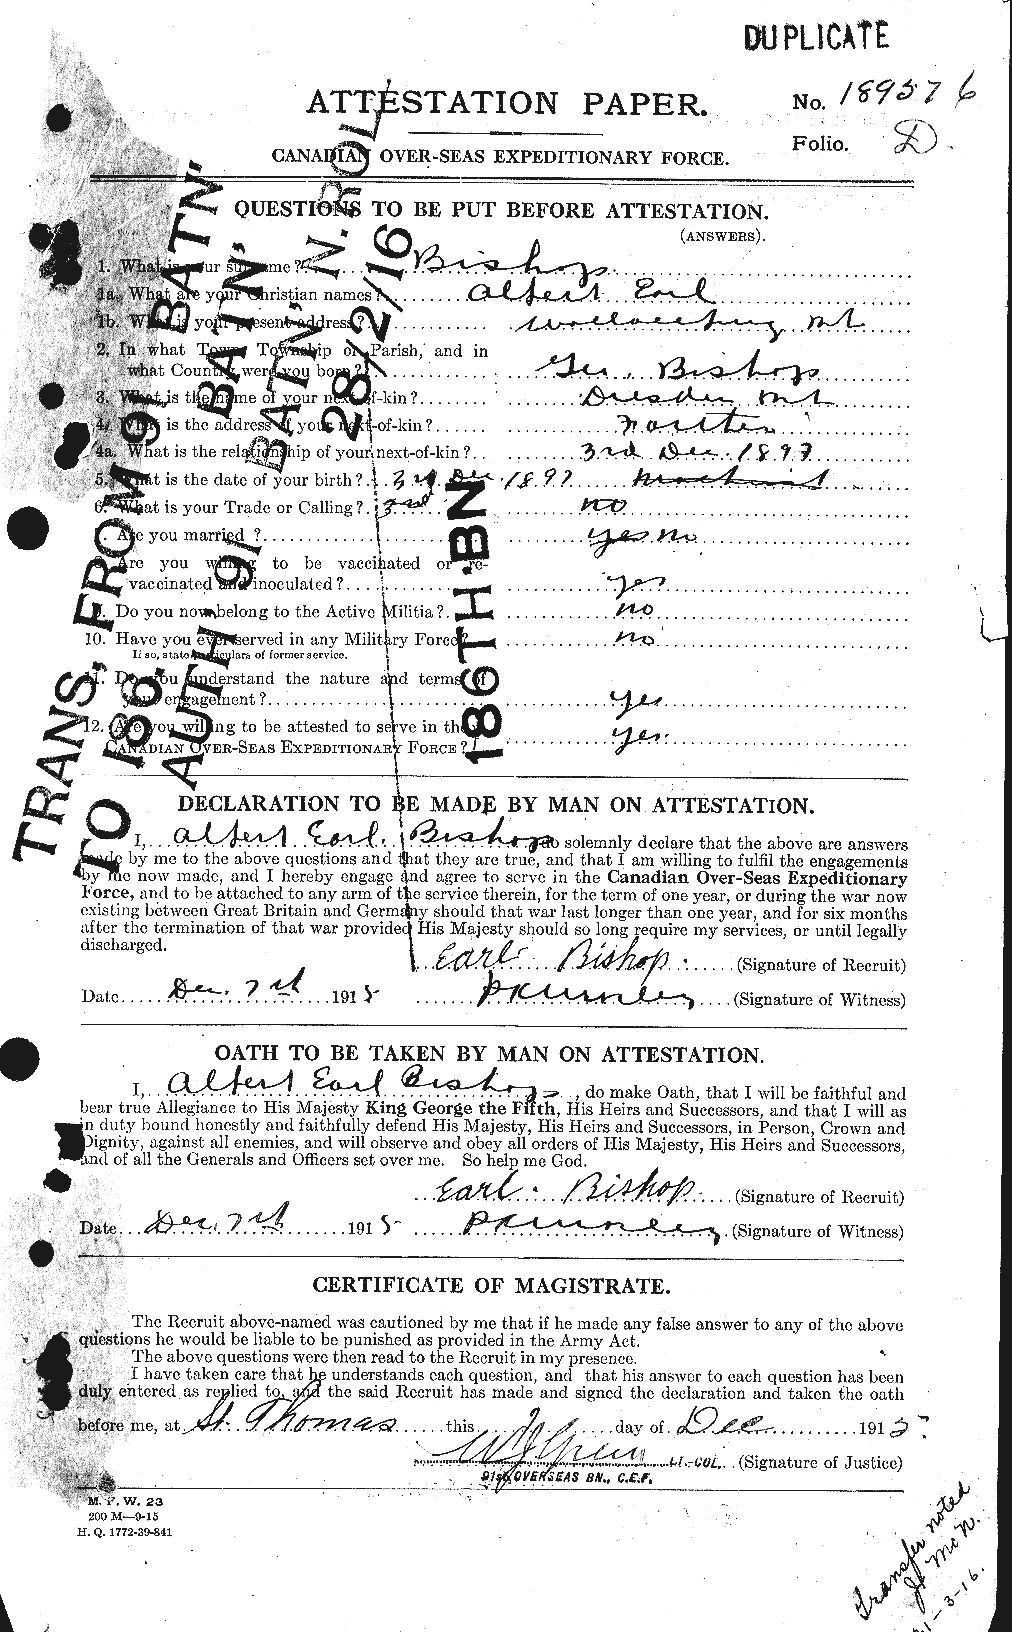 DUPLICATE
ATTESTATION PAPER.
No. 189576
Folio. D.
CANADIAN OVER-SEAS EXPEDITIONARY FORCE.
QUESTIONS TO BE PUT BEFORE ATTESTATION.
(ANSWERS).
1. What is your surname? Bishop
1a. What are your Christian names? Albert Earl
1b. What is your present address? Wallaceburg Ont
2. In what Town, Township or Parish, and in
what Country were you born? Geo. Bishop
3. What is the name of your next-of-kin? Dresden Ont
4. What is the address of your next-of-kin?
4a. What is the relationship of your next-of-kin? 3rd Dec. 1897
5. What is the date of your birth? 3rd Dec 1897
6. What is your Trade or Calling? 3rd no
7. Are you married? yes no
8. Are you willing to be vaccinated or re-
vaccinated and inoculated? yes
9. Do you now belong to the Active Militia? no
10. Have you ever served in any Military Force? no
If so, state particulars of former service.
11. Do you understand the nature and terms of
your engagement? yes
12. Are you willing to be attested to serve in the
CANADIAN OVER-SEAS EXPEDITIONARY FORCE? yes.
TRANS. FROM 91 BATN'
TO 186. BATN'
AUTH 91 BATN' N. ROL
28/2/16
186TH BN
DECLARATION TO BE MADE BY MAN ON ATTESTATION.
I, Albert Earl. Bishop do solemnly declare that the above are answers
made by me to the above questions and that they are true, and that I am willing to fulfil the engagements
by me now made, and I hereby engage and agree to serve in the Canadian Over-Seas Expeditionary
Force, and to be attached to any arm of the service therein, for the term of one year, or during the war now
existing between Great Britain and Germany should that war last longer than one year, and for six months
after the termination of that war provided His Majesty should so long require my services, or until legally
discharged.
Earl Bishop (Signature of Recruit)
Date Dec. 7th 1915 (Signature of Witness)
OATH TO BE TAKEN BY MAN ON ATTESTATION.
I, Albert Earl Bishop, do make Oath, that I will be faithful and
bear true Allegiance to His Majesty King George the Fifth, His Heirs and Successors, and that I will as
in duty bound honestly and faithfully defend His Majesty, His Heirs and Successors, in Person, Crown and
Dignity, against all enemies, and will observe and obey all orders of His Majesty, His Heirs and Successors,
and of all the Generals and Officers set over me. So help me God.
Earl. Bishop (Signature of Recruit)
Date Dec. 7th 1915 (Signature of Witness)
CERTIFICATE OF MAGISTRATE.
The Recruit above-named was cautioned by me that if he made any false answer to any of the above
questions he would be liable to be punished as provided in the Army Act.
The above questions were then read to the Recruit in my presence.
I have taken care that he understands each question, and that his answer to each question has been
duly entered as replied to, and the said Recruit has made and signed the declaration and taken the oath
before me, at St. Thomas this day of Dec 1915
W J Green LT-COL. (Signature of Justice)
91st OVERSEAS BN., C.E.F.
M. F. W. 23
200 M—9-15
H. Q. 1772-39-841
Transfer noted
J. McN.
21-3-16.